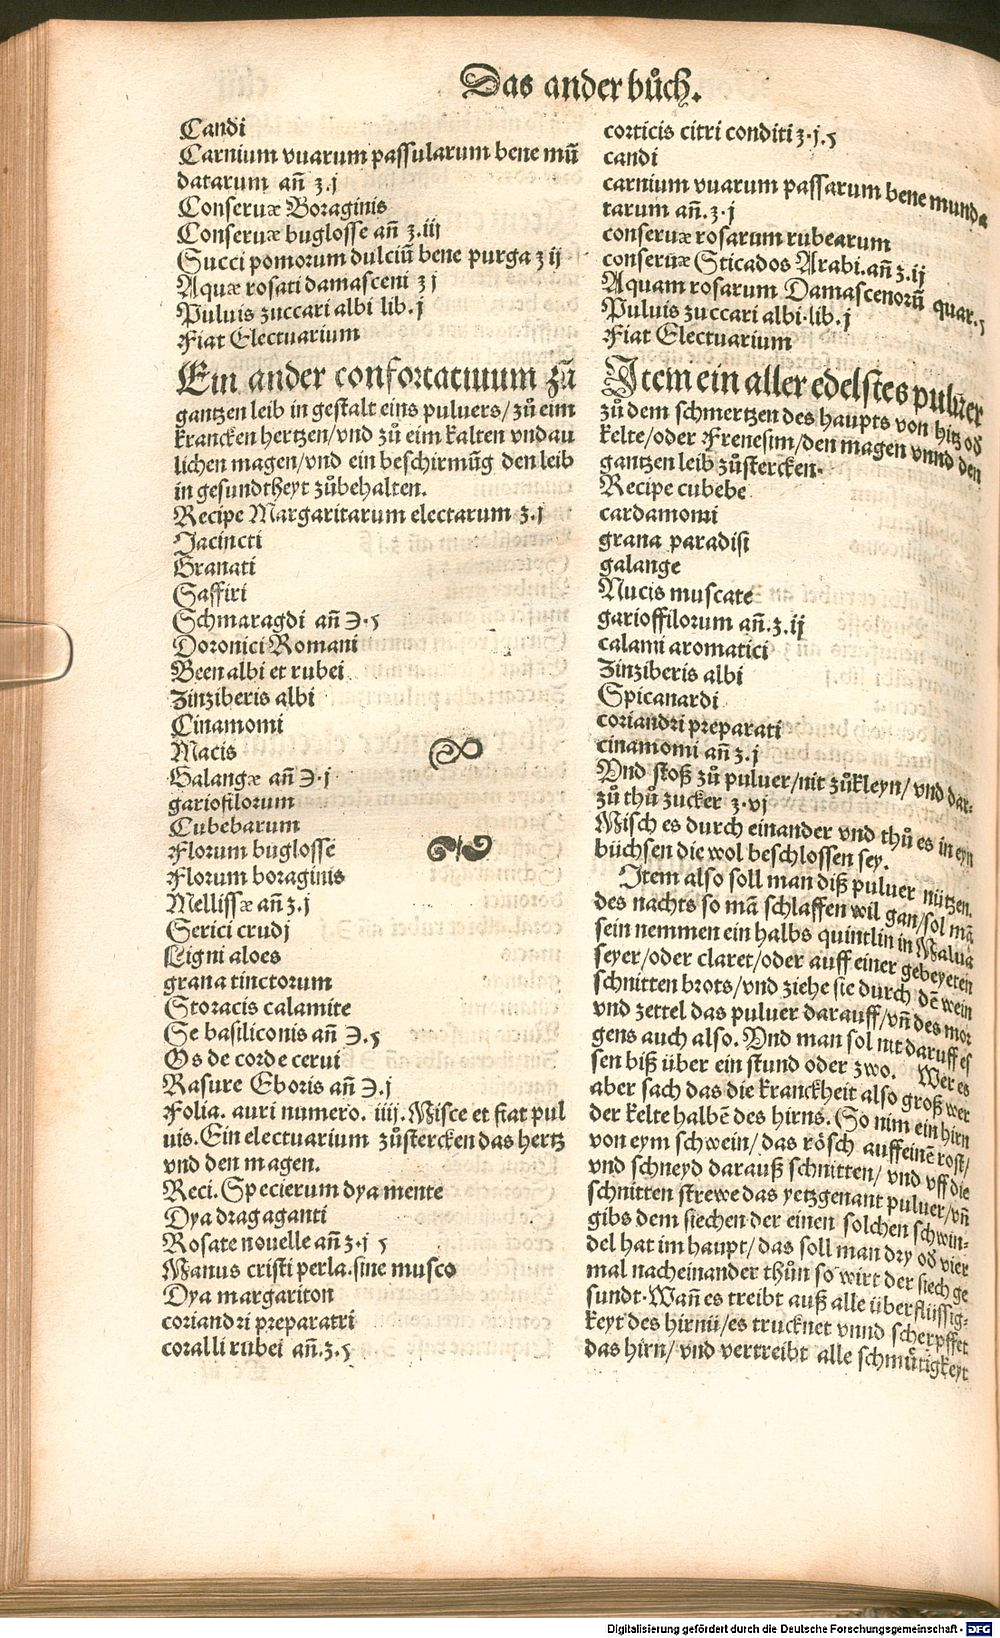 Das ander bůch.
Candi
Carnium vuarum passularum bene mũ
datarum añ ʒ.j
Conseruæ Boraginis
Conseruæ buglosse añ ʒ.iij
Succi pomorum dulciũ bene purga ʒ ij
Aquæ rosati damasceni ʒ j
Puluis zuccari albi lib.j
Fiat Electuarium
Ein ander confortatiuum zů
gantzen leib in gestalt eins puluers/zů eim
krancken hertzen/vnd zů eim kalten vndau
lichen magen/vnd ein beschirmũg den leib
in gesundtheyt zůbehalten.
Recipe Margaritarum electarum ʒ.j
Jacincti
Granati
Saffiri
Schmaragdi añ ℈.ꝭ
Doronici Romani
Been albi et rubei
Zinziberis albi
Cinamomi
Macis
Galangæ añ ℈.j
gariofilorum
Cubebarum
Florum buglosse
Florum boraginis
Mellissæ añ ʒ.j
Serici crudj
Ligni aloes
grana tinctorum
Storacis calamite
Se basiliconis añ ℈.ꝭ
Os de corde cerui
Rasure Eboris añ ℈.j
Folia. auri numero. iiij. Misce et fiat pul
uis. Ein electuarium zůstercken das hertz
vnd den magen.
Reci. Specierum dya mente
Dya dragaganti
Rosate nouelle añ ʒ.j ꝭ
Manus cristi perla.sine musco
Dya margariton
coriandri preparatri
coralli rubei añ.ʒ.ꝭ
corticis citri conditi ʒ.j.ꝭ
candi
carnium vuarum passarum bene munda
tarum añ.ʒ.j
conseruæ rosarum rubearum
conseruæ Sticados Arabi.añ ʒ.ij
Aquam rosarum Damascenorũ quar.ꝭ
Puluis zuccari albi.lib.j
Fiat Electuarium
Item ein aller edelstes puluer
zů dem schmertzen des haupts von hitz oď
kelte/oder Frenesim/den magen vnnd den
gantzen leib zůstercken.
Recipe cubebe
cardamomi
grana paradisi
galange
Nucis muscate
garioffilorum añ.ʒ.ij
calami aromatici
Zinziberis albi
Spicanardi
coriandri preparati
cinamomi añ ʒ.j
Vnd stoß zů puluer/nit zůkleyn/vnd dar-
zů thů zucker ʒ.vj
Misch es durch einander vnd thů es in eyn
büchsen die wol beschlossen sey.
Item also soll man diß puluer nützen.
des nachts so mã schlaffen wil gan/sol mã
sein nemmen ein halbs quintlin in Malua
seyer/oder claret/oder auff einer gebeyeten
schnitten brots/vnd ziehe sie durch dẽ wein
vnd zettel das puluer darauff/vñ des mor
gens auch also. Vnd man sol nit daruff es
sen biß über ein stund oder zwo. Wer es
aber sach das die kranckheit also groß wer
der kelte halbẽ des hirns. So nim ein hirn
von eym schwein/das rösch auff einẽ rost/
vnd schneyd darauß schnitten/vnd vff die
schnitten strewe das yetzgenant puluer/vñ
gibs dem siechen der einen solchen schwin-
del hat im haupt/das soll man dry oď vier
mal nacheinander thůn so wirt der siech ge
sundt. Wañ es treibt auß alle überflüssig-
keyt des hirnü/es trucknet vnnd scherpffet
das hirn/vnd vertreibt alle schmůtigkeyt
Digitalisierung gefördert durch die Deutsche Forschungsgemeinschaft - DFG